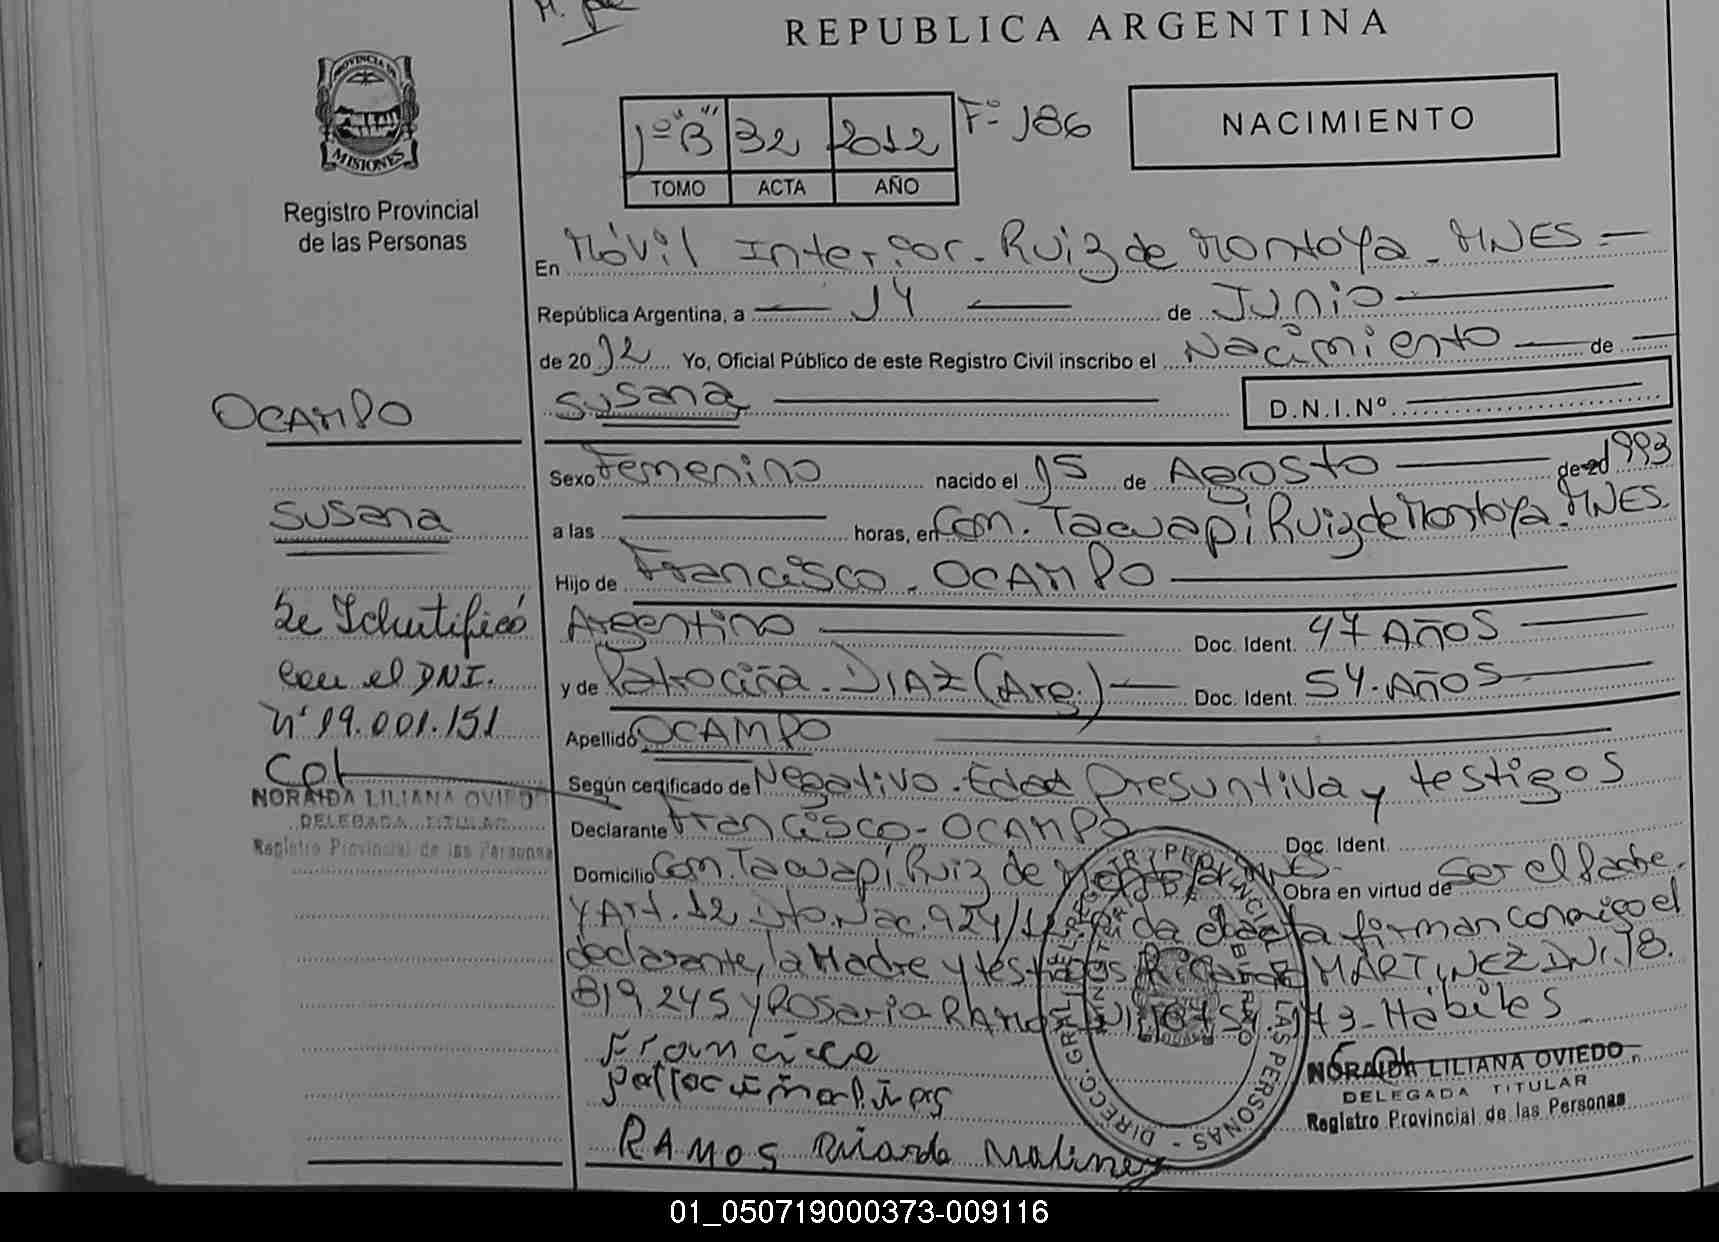 REPUBLICA ARGENTINA
PROVINCIA DE
MISIONES
Registro Provincial
de las Personas
1º "B" 32 2012 Fº 186
TOMO ACTA AÑO
NACIMIENTO
En Móvil Interior - Ruiz de Montoya - MNES = —
República Argentina, a — 14 — de Junio —
de 2012 Yo, Oficial Público de este Registro Civil inscribo el Nacimiento — de —
Susana — D.N.I.Nº —
OCAMPO
Susana
Se Identificó
con el DNI.
Nº 19.001.151
NORAIDA LILIANA OVIEDO
DELEGADA TITULAR
Registro Provincial de las Personas
Sexo Femenino nacido el 15 de Agosto — de 1993
a las — horas, en Com. Tacuapí Ruiz de Montoya - MNES.
Hijo de Francisco - OCAMPO —
Argentino — Doc. Ident. 47 AÑOS —
y de Patrociña - DIAZ (Arg.) — Doc. Ident. 54 - AÑOS —
Apellido OCAMPO —
Según certificado de Negativo - Edad Presuntiva y testigos
Declarante Francisco - OCAMPO Doc. Ident.
Domicilio Com. Tacuapí Ruiz de Montoya MNES - Obra en virtud de Ser el Padre.
y Art. 12 Dto. Nac. 924/12 Leída el acta firman conmigo el
declarante, la Madre y testigos Ricardo MARTINEZ DNI. 18.
819.245 y Rosaria RAMOS - Hábiles -
Francisco
RAMOS Ricardo Martinez
DIRECC. GRAL. DEL REGISTRO PROVINCIAL DE LAS PERSONAS -
NORAIDA LILIANA OVIEDO
DELEGADA TITULAR
Registro Provincial de las Personas
01_050719000373-009116